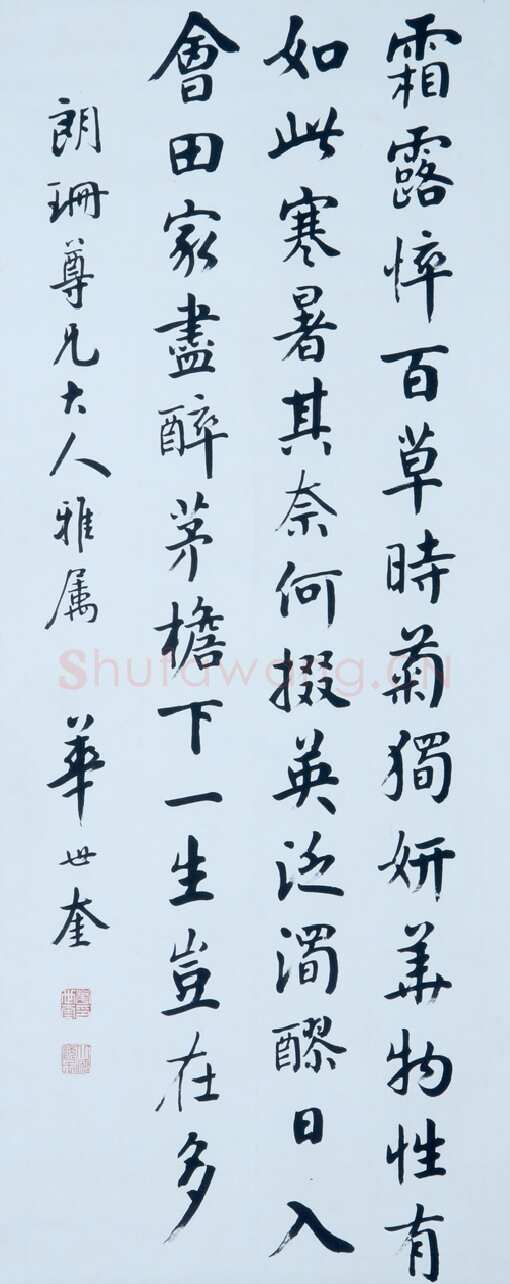 霜露悴百草時菊獨妍華物性有
如此寒暑其奈何掇英泛濁醪日入
會田家盡醉茅檐下一生豈在多
朗珊尊兄大人雅属 華世奎
Shufawang.CN